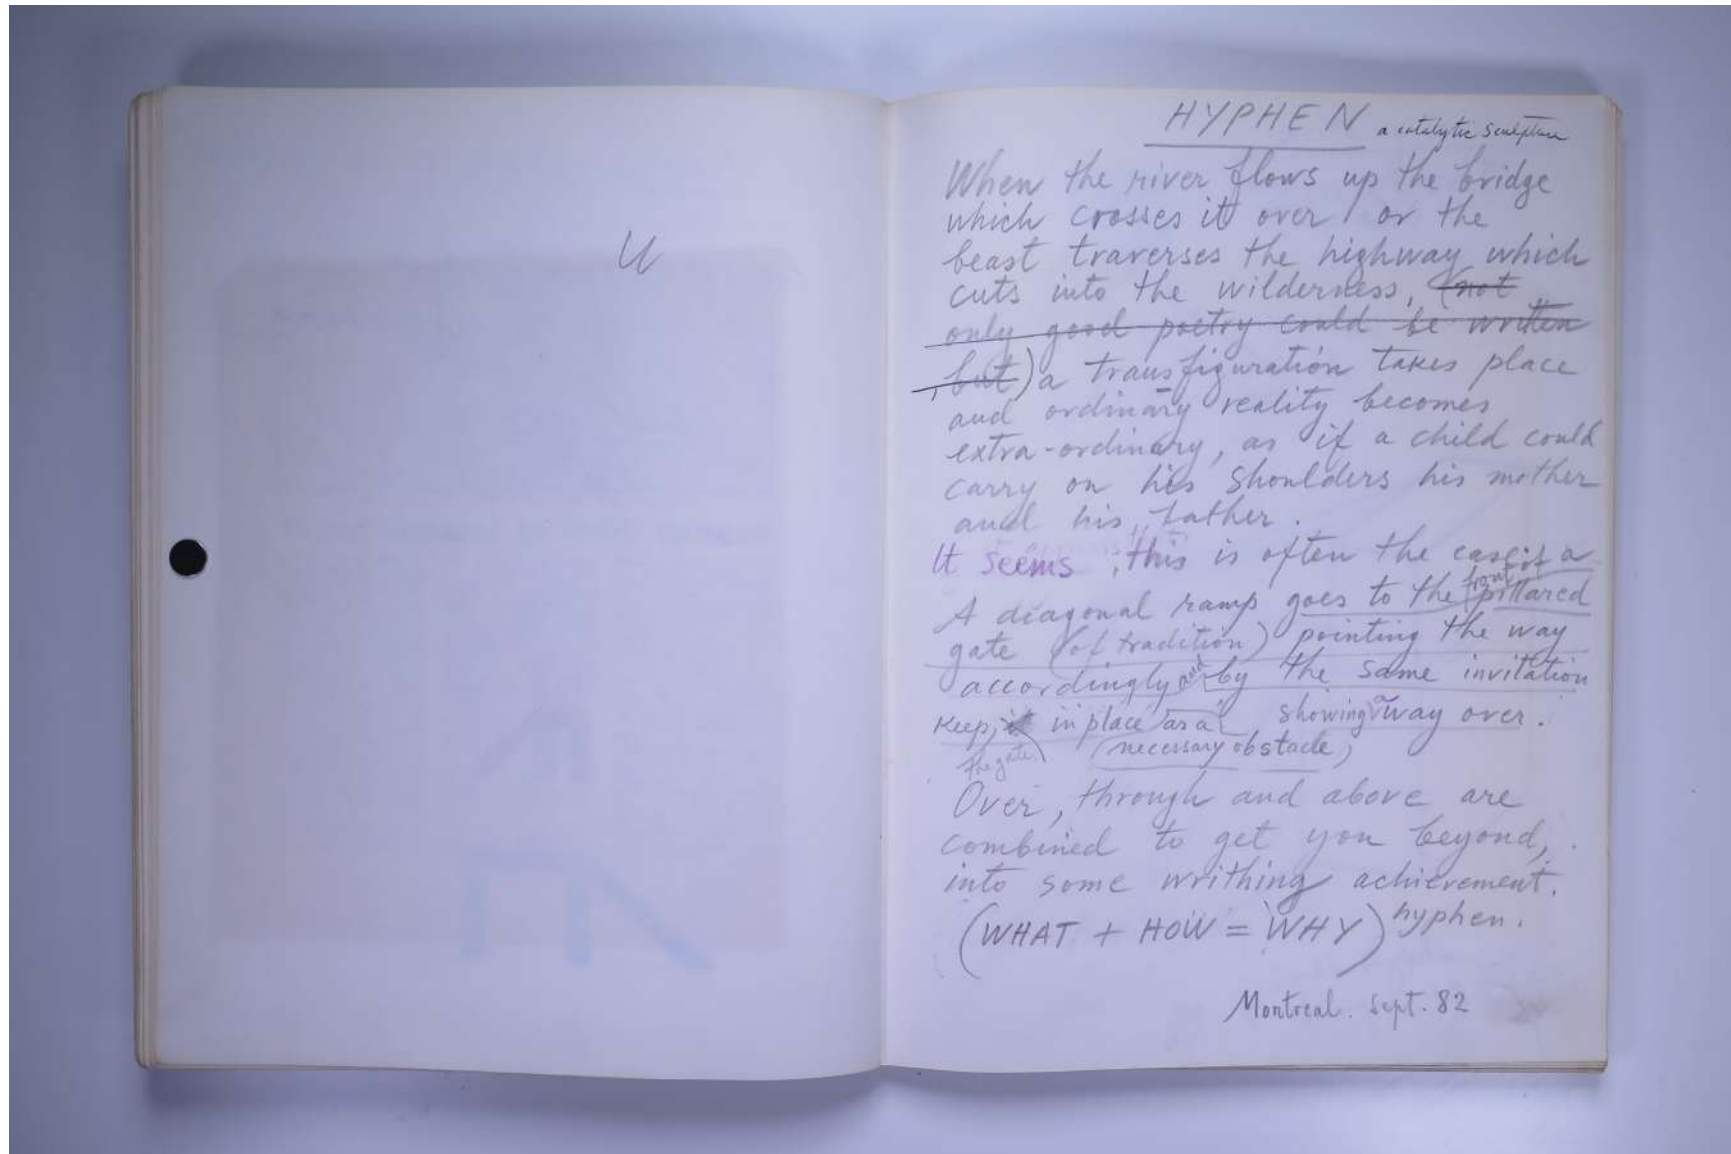 U
HYPHEN a catalytic sculpture
When the river flows up the bridge
which crosses it over / or the
beast traverses the highway which
cuts into the wilderness, (not
only good poetry could be written
, but) a transfiguration takes place
and ordinary reality becomes
extra-ordinary, as if a child could
carry on his shoulders his mother
and his father.
It seems, this is often the case if a
front
A diagonal ramp goes to the pillared
gate (of tradition) pointing the way
accordingly and by the same invitation
keep, it in place as a showing way over.
the gate necessary obstacle,
Over, through and above are
combined to get you beyond,
into some writhing achievement.
(WHAT + HOW = WHY) hyphen.
Montreal. Sept. 82